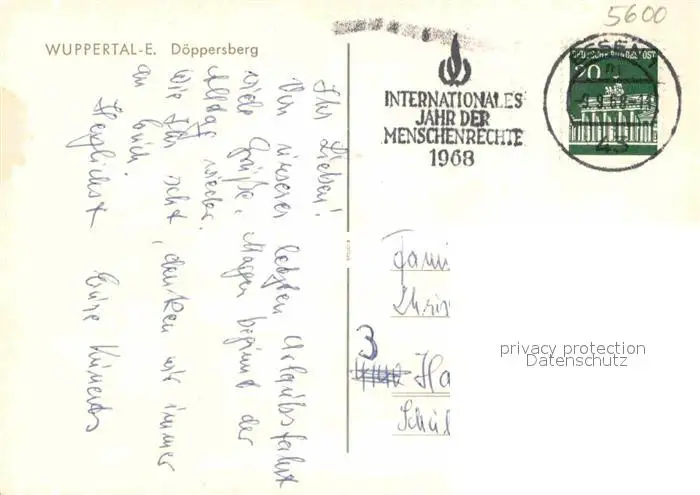 5600
WUPPERTAL-E. Döppersberg
Ihr Lieben!
Von unserer letzten Urlaubsfahrt
viele Grüße. Morgen beginnt der
Alltag wieder.
Wie Ihr seht, denken wir immer
an Euch.
Herzlichst Eure
INTERNATIONALES
JAHR DER
MENSCHENRECHTE
1968
ESSEN
DEUTSCHE BUNDESPOST
20
9.68
43
Fami
Chris
3
Ha
Schül
privacy protection
Datenschutz